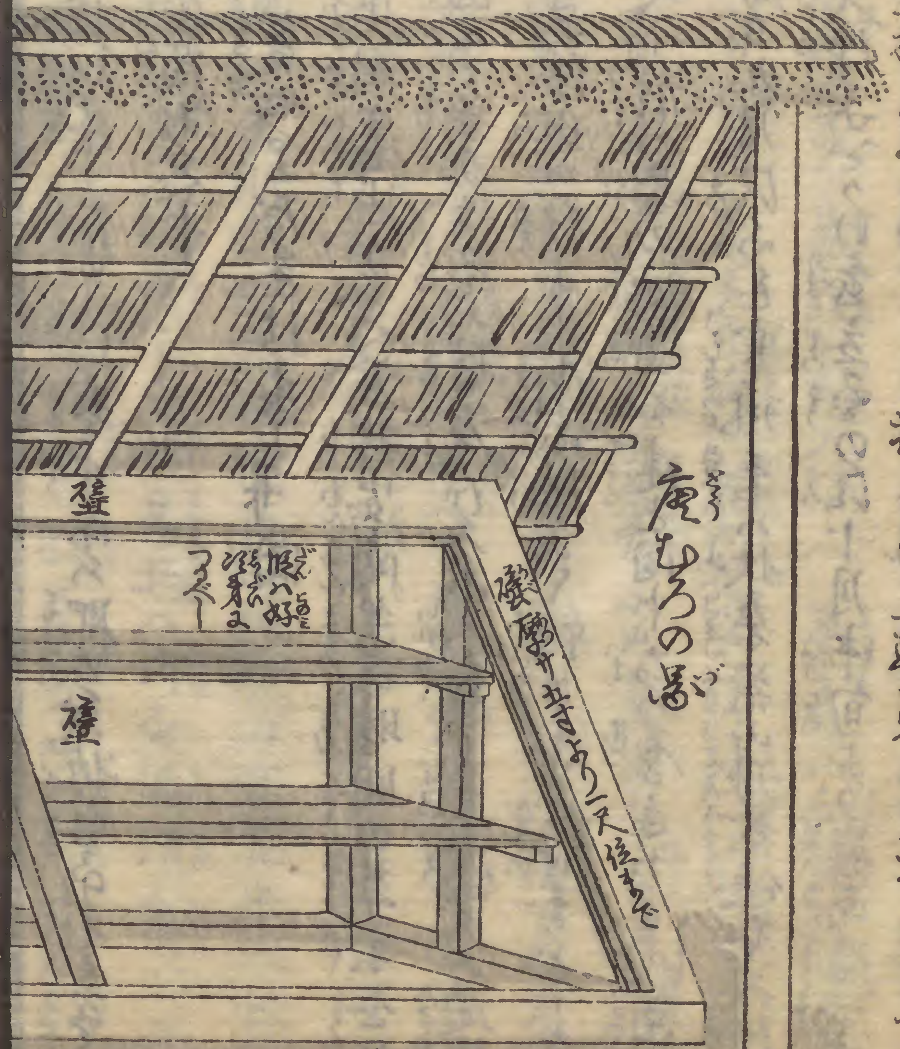 唐むろの圖
壁厚サ五寸より一尺位まで
壁
段ハ好
次第に
つるべし
壁